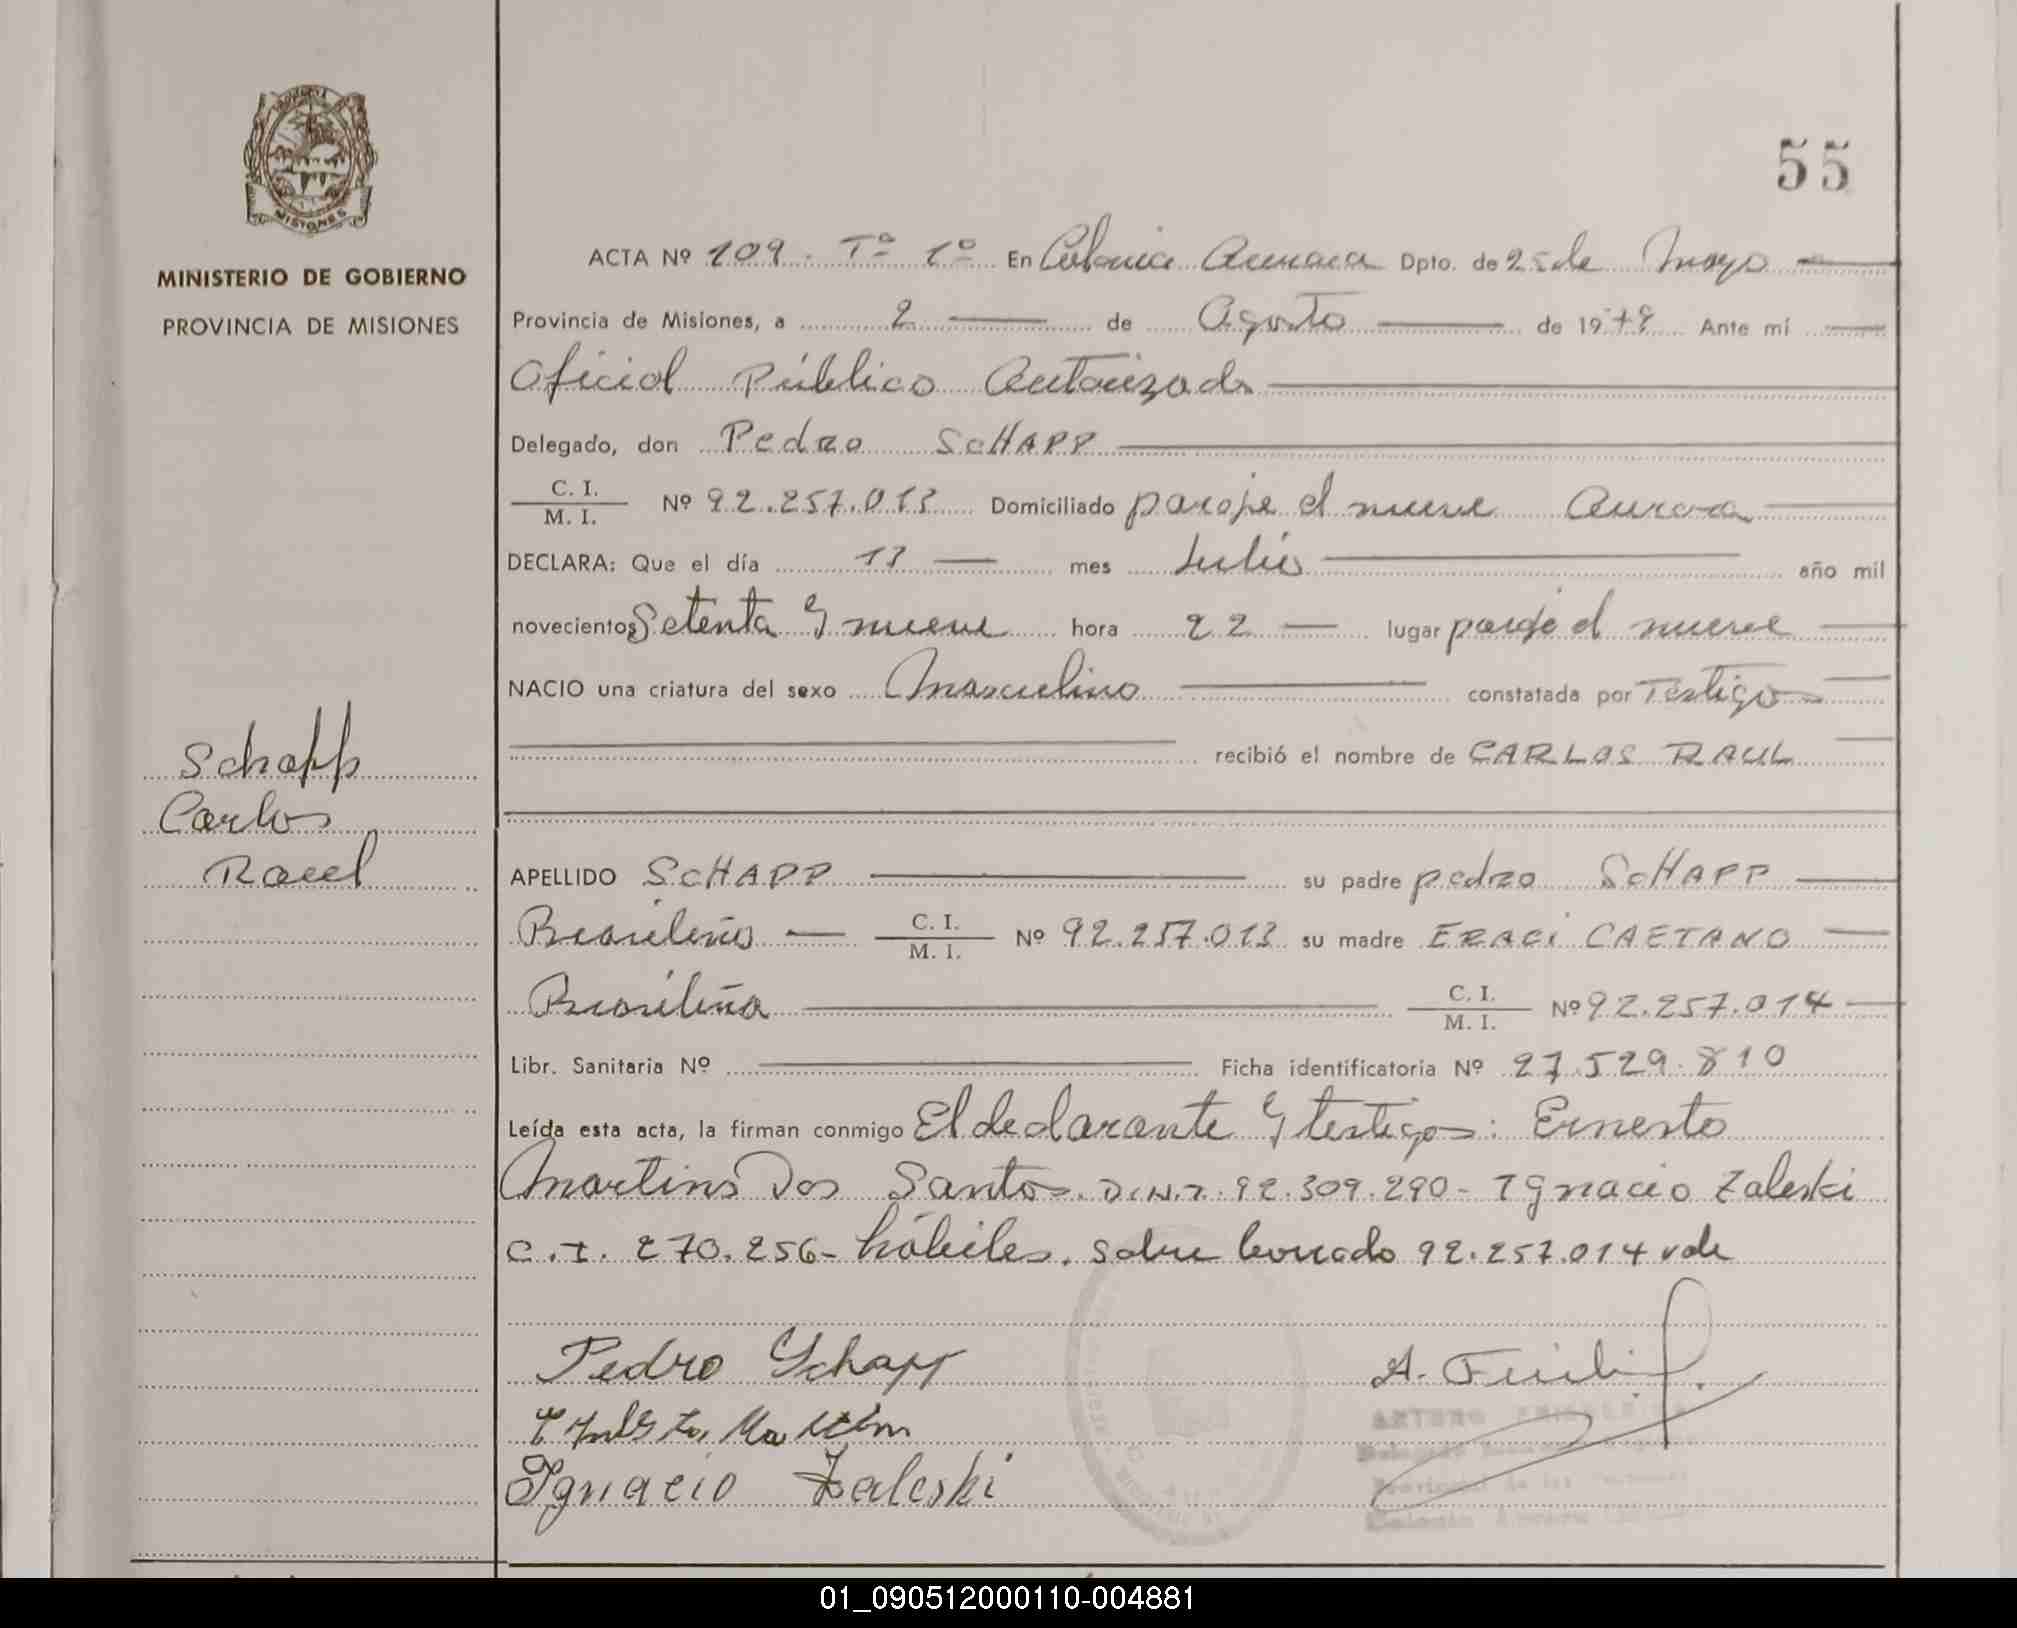 55
MISIONES
MINISTERIO DE GOBIERNO
PROVINCIA DE MISIONES
Schapp
Carlos
Raul
ACTA Nº 109. Tº 1º En Colonia Aurora Dpto. de 25 de Mayo
Provincia de Misiones, a 2 de Agosto de 1979 Ante mí
Oficial Público Autorizado
Delegado, don Pedro SCHAPP
C. I. / M. I. Nº 92.257.013 Domiciliado paraje el nueve Aurora
DECLARA: Que el día 13 mes Julio año mil
novecientos Setenta y nueve hora 22 lugar paraje el nueve
NACIO una criatura del sexo Masculino constatada por Testigos
recibió el nombre de CARLOS RAUL
APELLIDO SCHAPP su padre pedro SCHAPP
Brasileño C. I. / M. I. Nº 92.257.013 su madre ERACI CAETANO
Brasileña C. I. / M. I. Nº 92.257.014
Libr. Sanitaria Nº Ficha identificatoria Nº 27.529.810
Leída esta acta, la firman conmigo El declarante y testigos: Ernesto
Martins Dos Santos. D.N.I. 92.309.290- Ignacio Zaleski
C.I. 270.256- hábiles. sobre borrado 92.257.014 vale
Pedro Schapp
Ignacio Zaleski
01_090512000110-004881